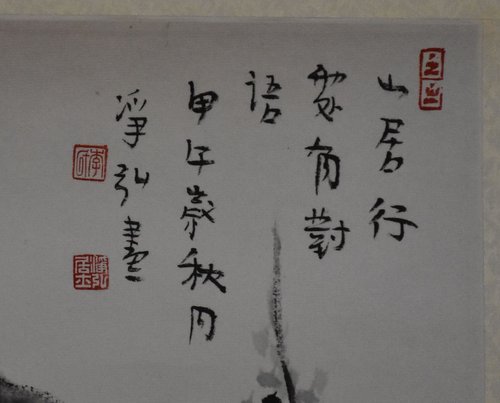 山居行
處有對
語
甲午歲秋月
淨弘畫